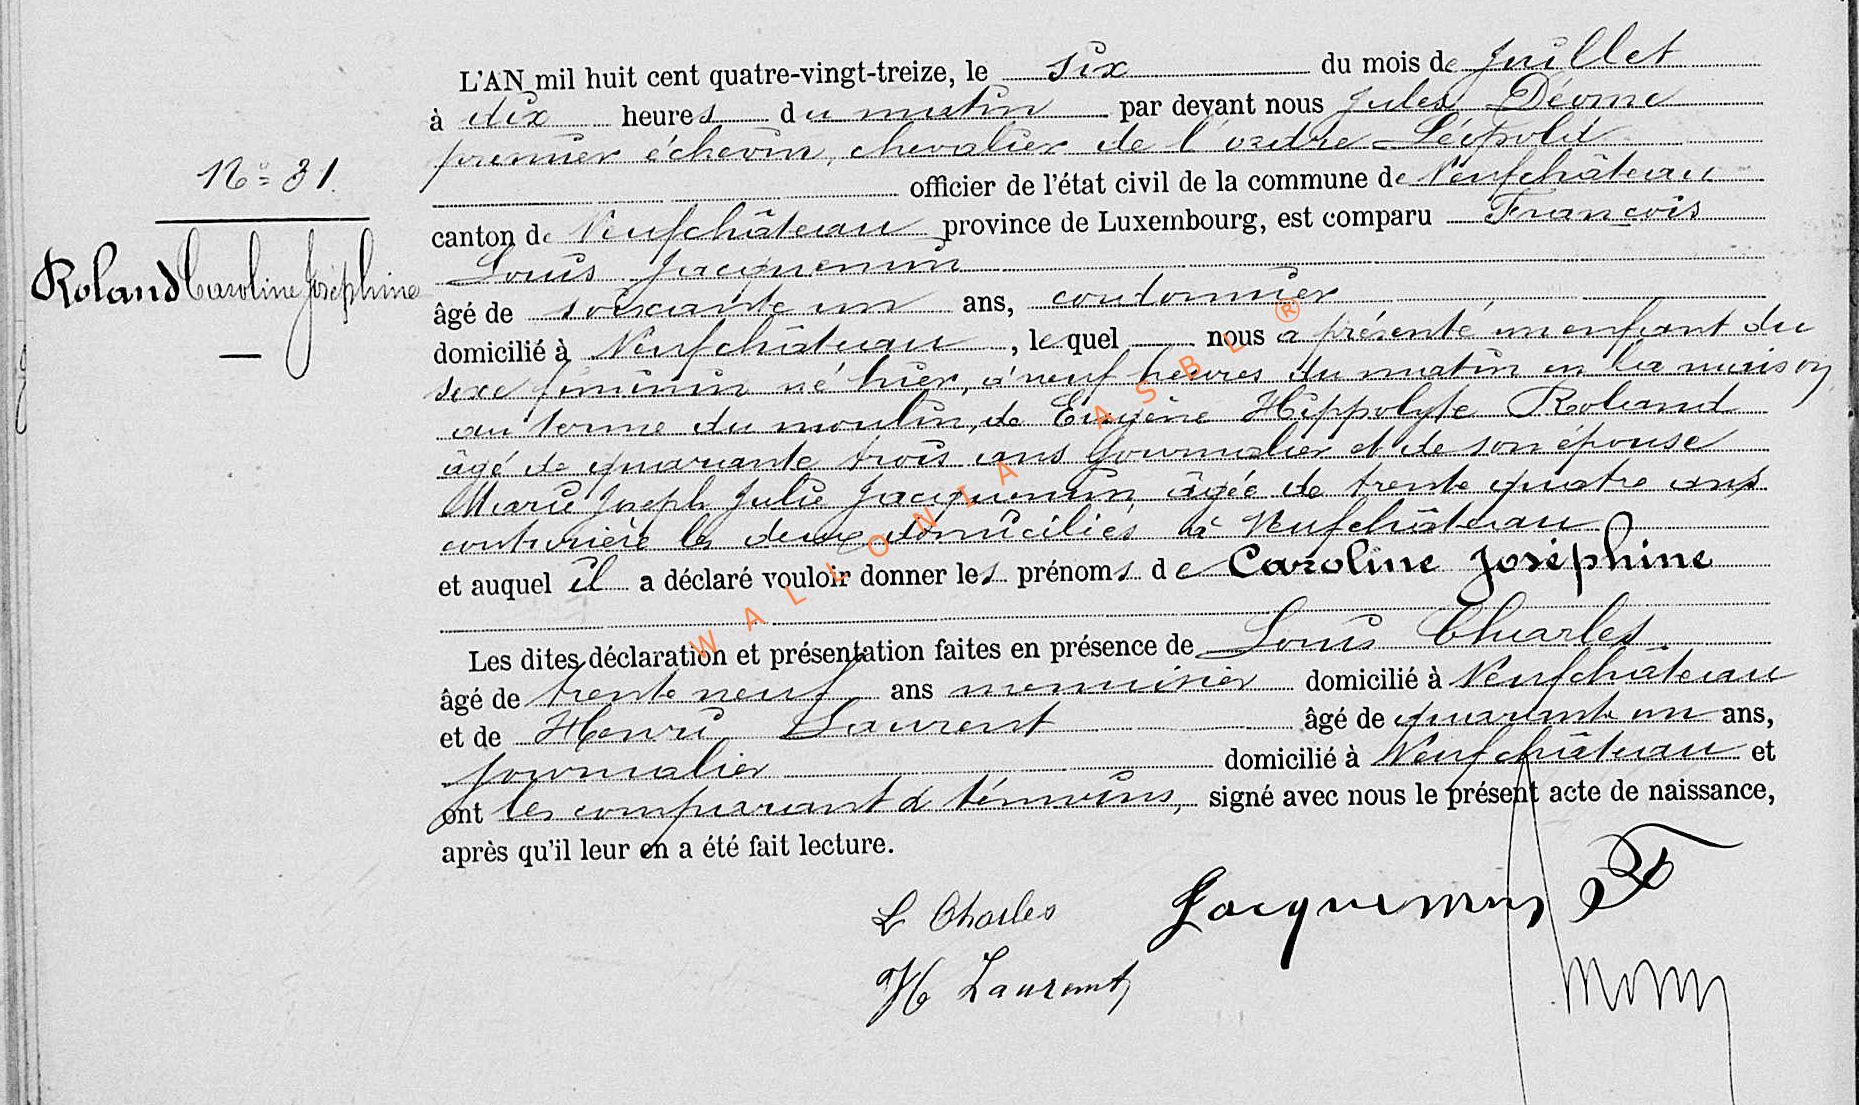 N° 31.
Roland Caroline Joséphine
L'AN mil huit cent quatre-vingt-treize, le six du mois de Juillet
à dix heures du matin par devant nous Jules Déome
premier échevin, chevalier de l'ordre Léopold
officier de l'état civil de la commune de Neufchâteau
canton de Neufchâteau province de Luxembourg, est comparu François
Louis Jacquemin
âgé de soixante un ans, cordonnier
domicilié à Neufchâteau, lequel nous a présenté un enfant du
sexe féminin né hier, à neuf heures du matin en la maison
au terme du moulin, de Eugène Hippolyte Roland
âgé de quarante trois ans journalier et de son épouse
Marie Joseph Julie Jacquemin âgée de trente quatre ans
couturière les deux domiciliés à Neufchâteau
et auquel il a déclaré vouloir donner les prénoms de Caroline Joséphine
Les dites déclaration et présentation faites en présence de Louis Charles
âgé de trente neuf ans menuisier domicilié à Neufchâteau
et de Henri Laurent âgé de quarante un ans,
journalier domicilié à Neufchâteau et
ont les comparant & témoins, signé avec nous le présent acte de naissance,
après qu'il leur en a été fait lecture.
L Charles Jacquemin F
H Laurent
WALLONIA ASBL ®